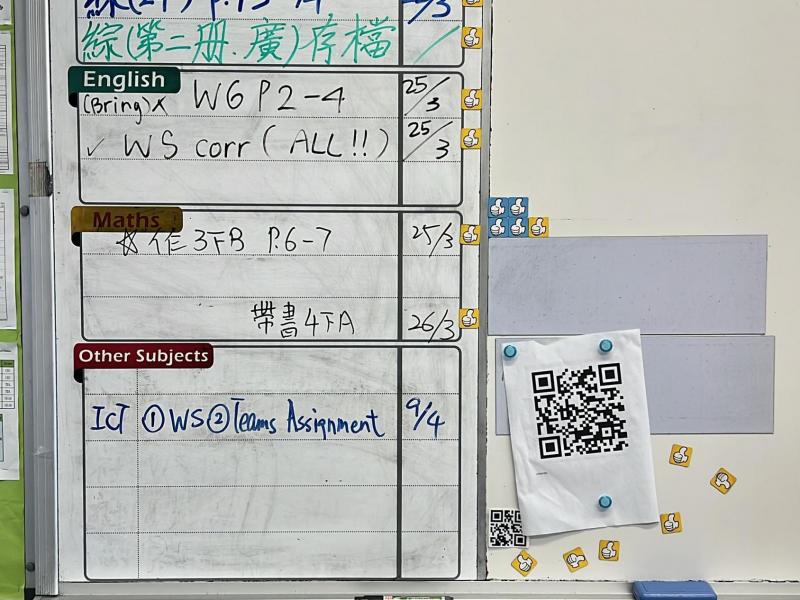 綜(第二册.廣)存檔
English
(Bring) WG P2-4 25/3
✓ WS corr (ALL!!) 25/3
Maths
☆作3下B P.6-7 25/3
帶書4下A 26/3
Other Subjects
ICT ①WS②Teams Assignment 9/4